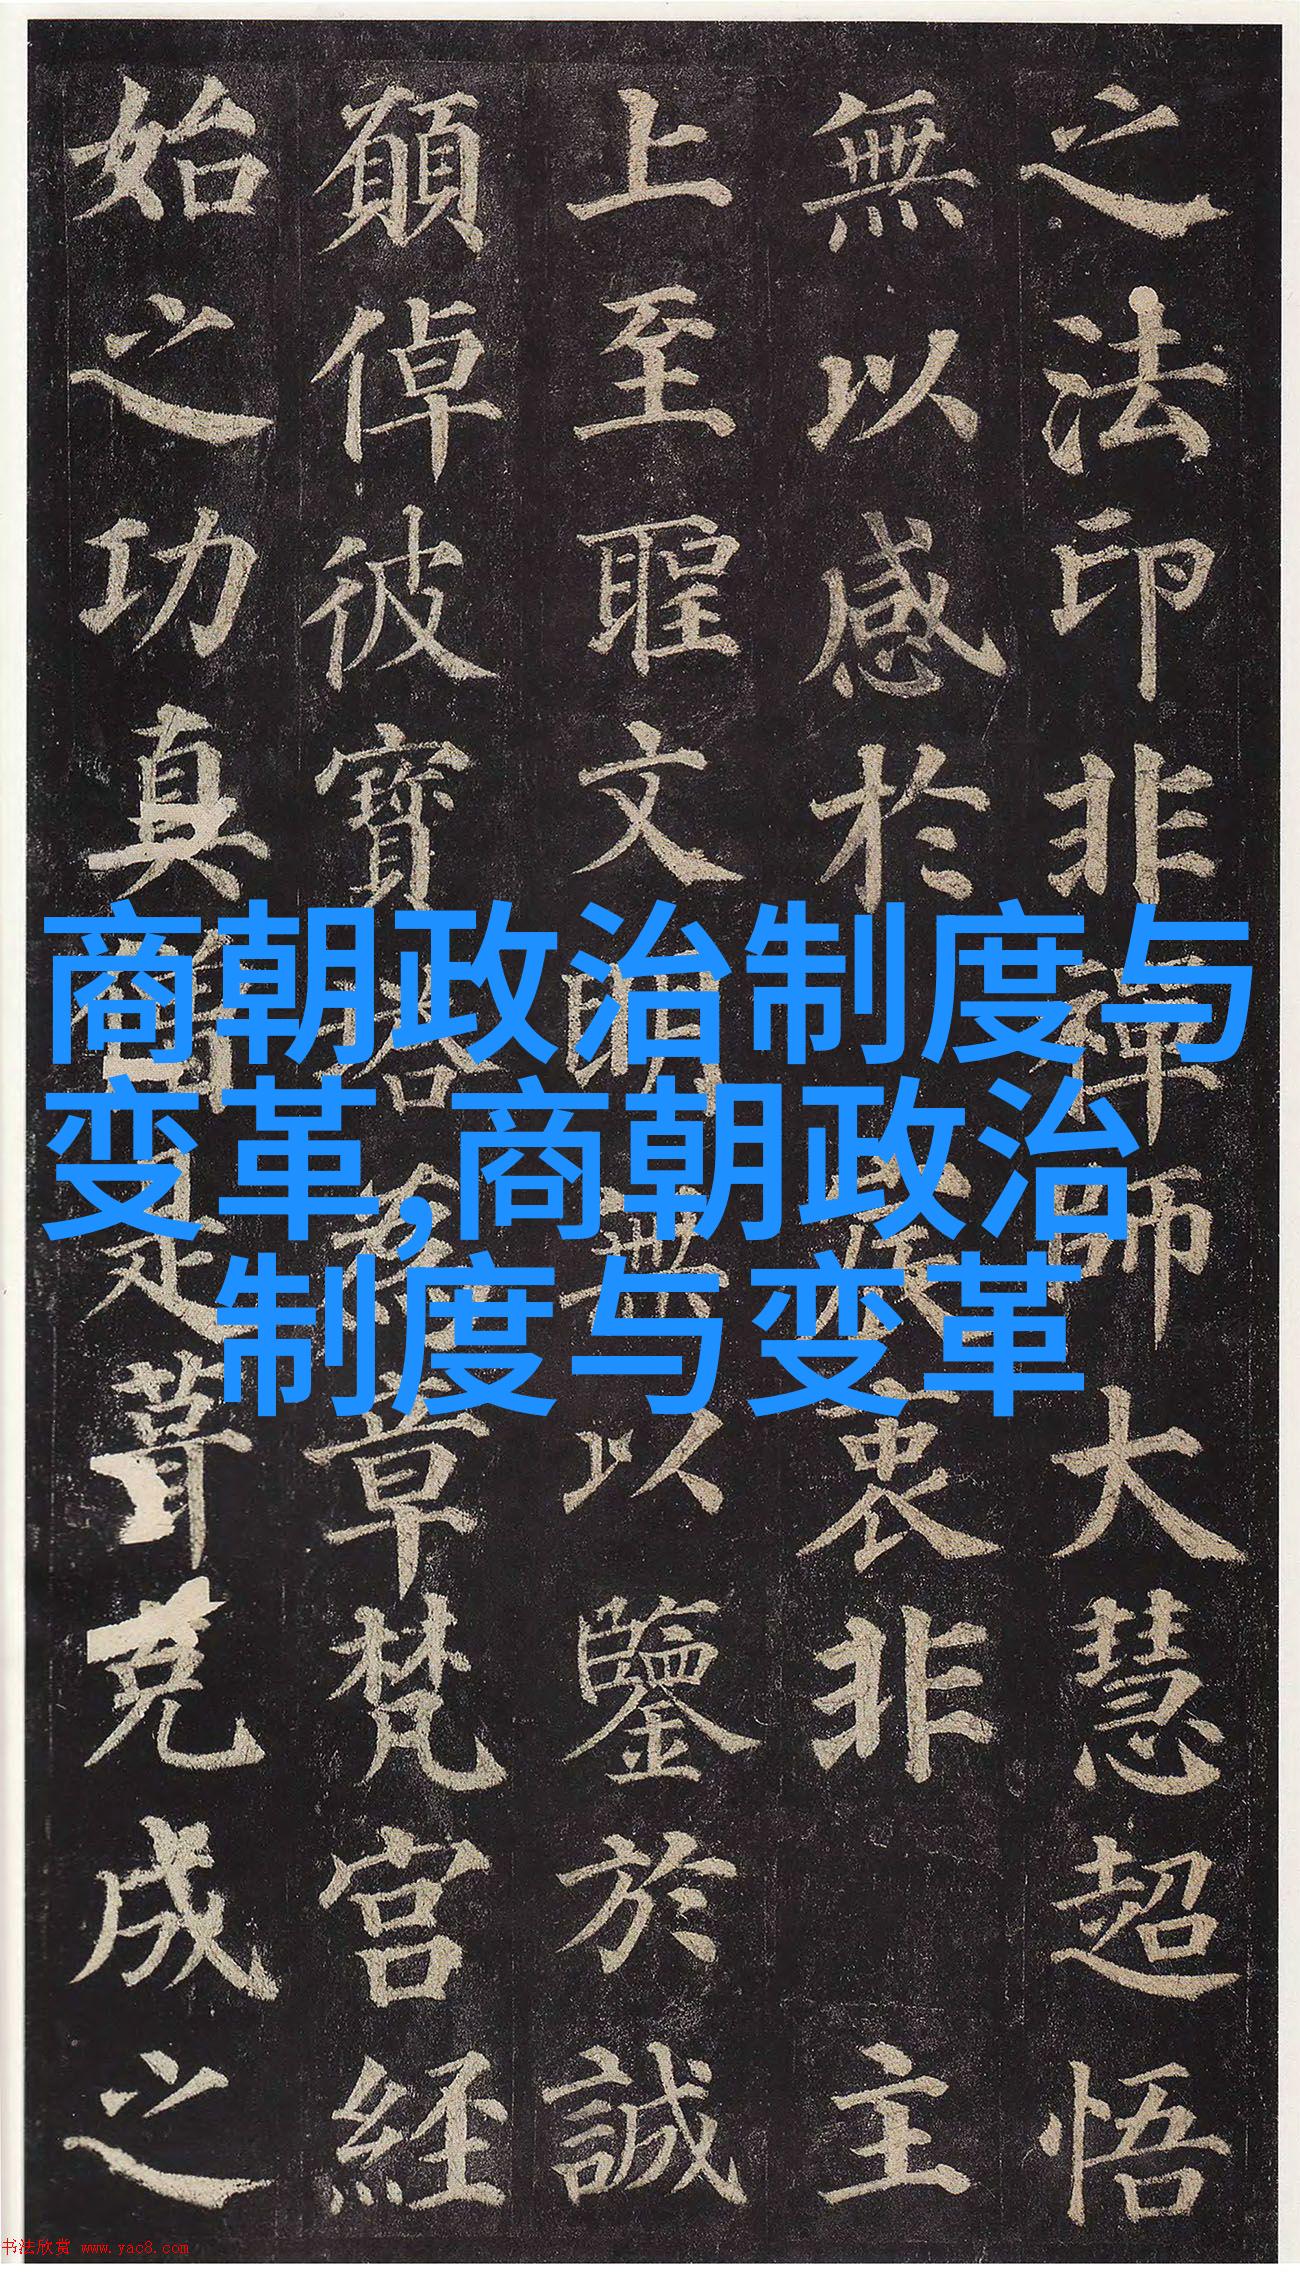 商朝政治制度与
变革,商朝政治
制度与变革
之法印非禪師大慧超悟
無以感於宸衷非主
上至聖文明無以鑒於誠
願倬彼寶塔為章梵宮經
始之功真僧是葺克成之
书法欣赏 www.yac8.com